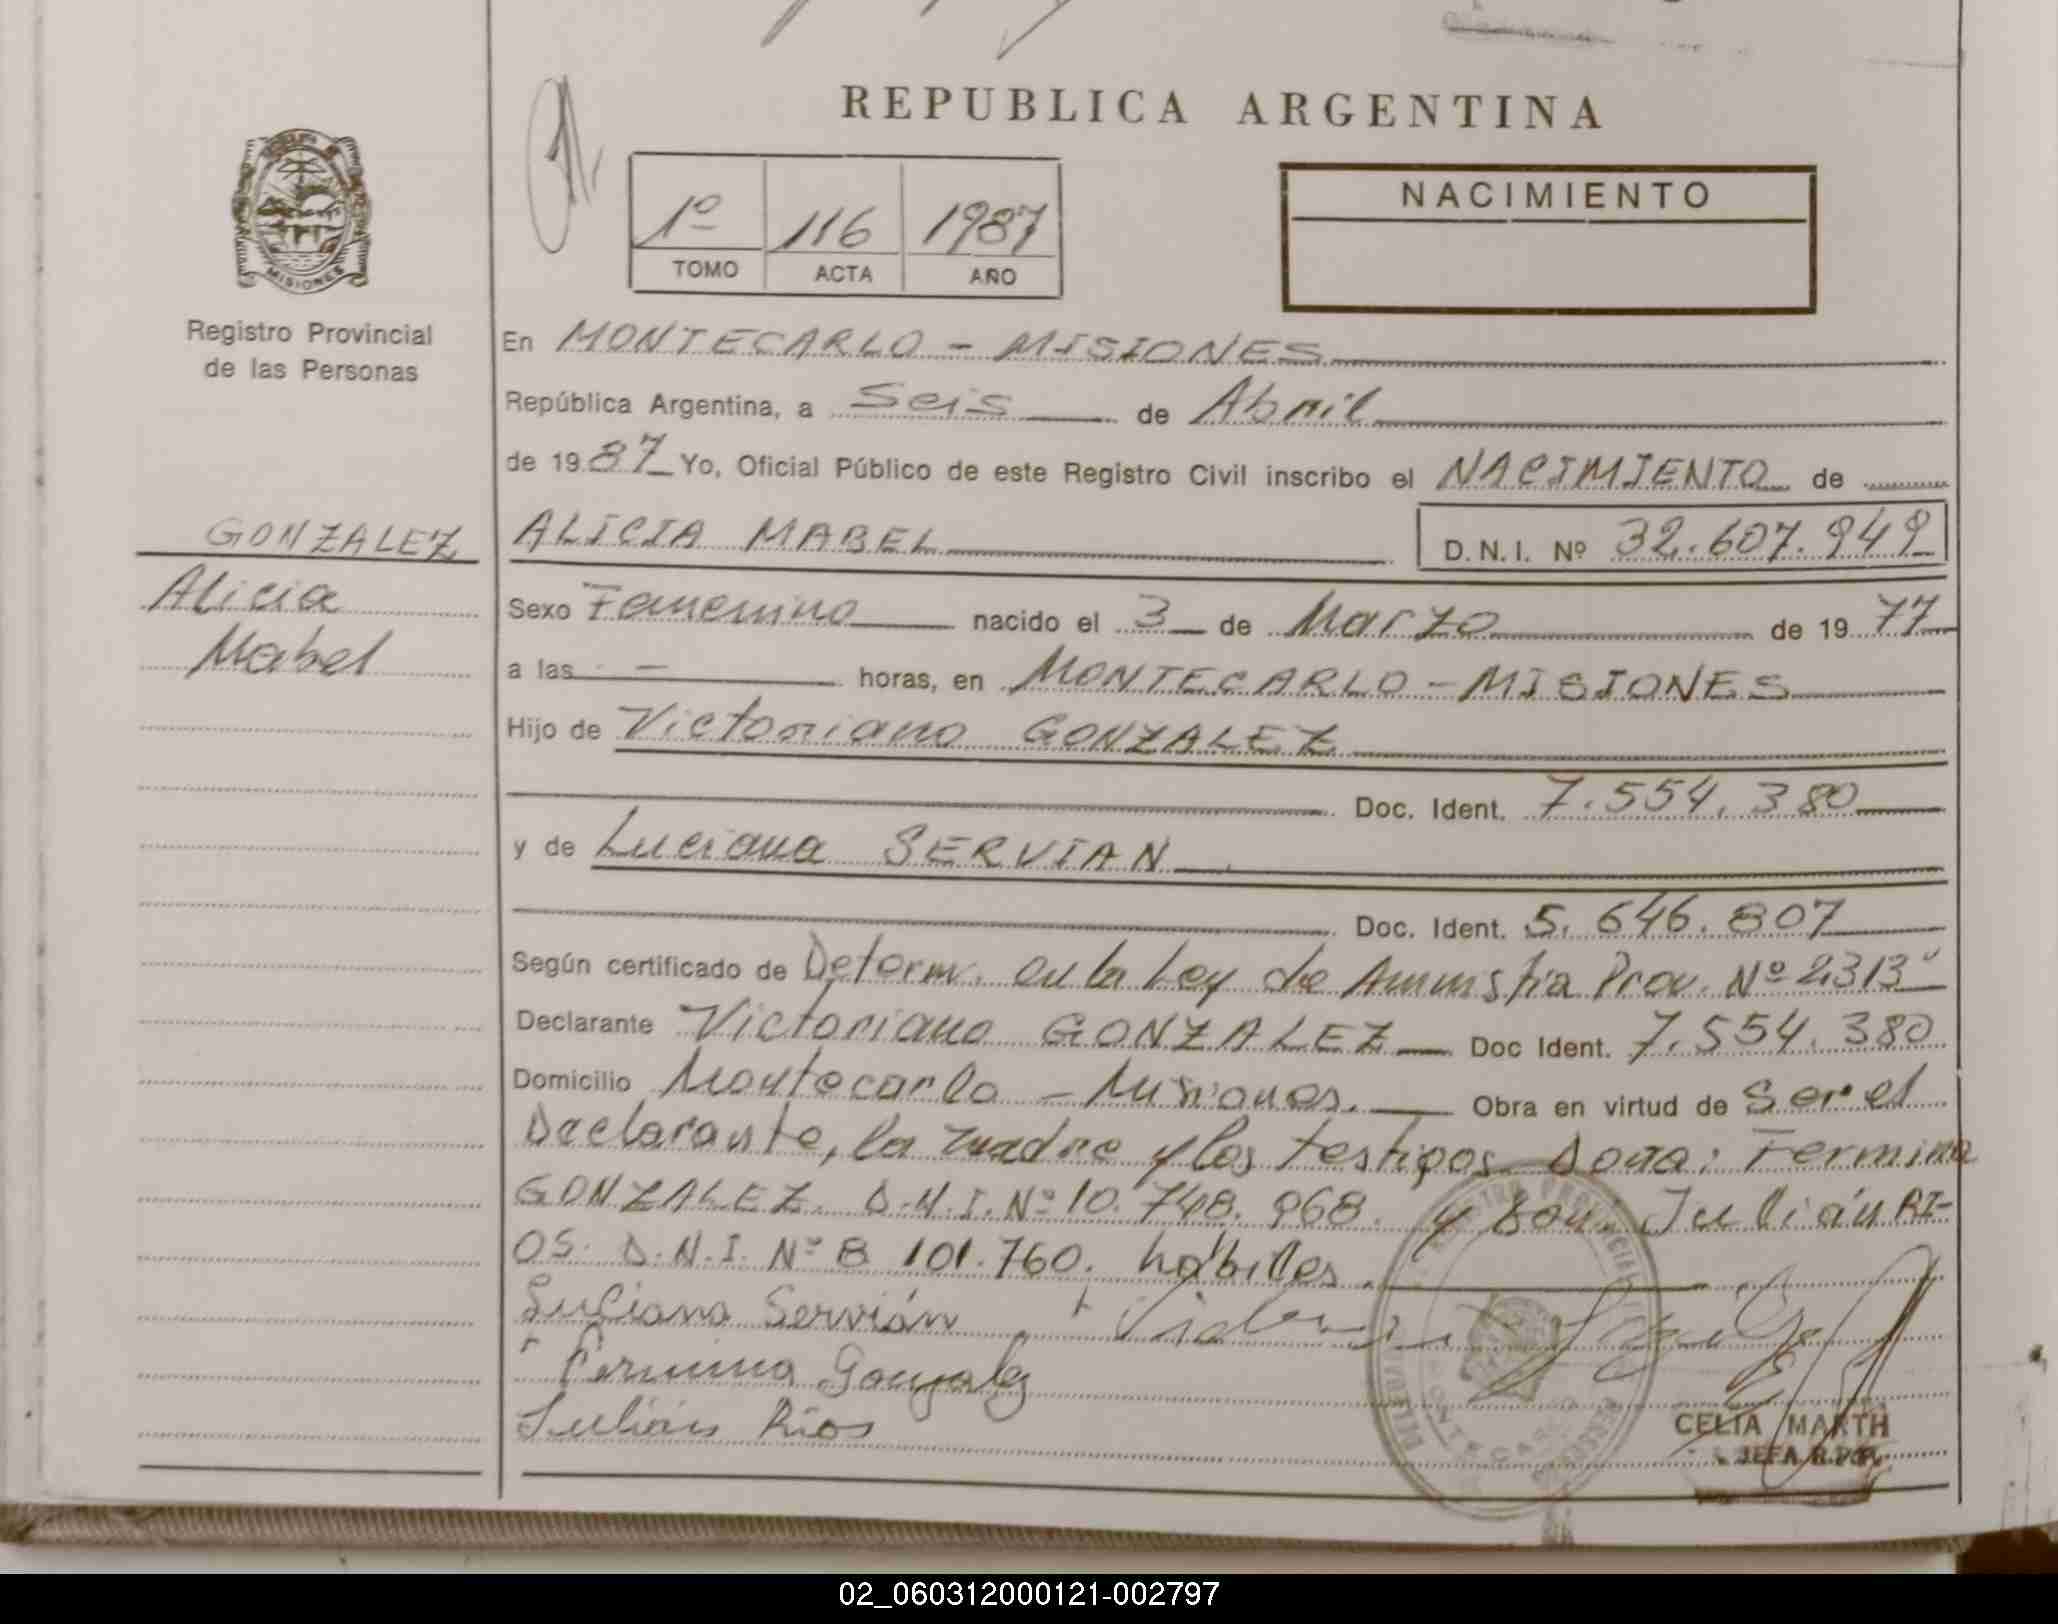 REPUBLICA ARGENTINA
MISIONES
Registro Provincial
de las Personas
1º 116 1987
TOMO ACTA AÑO
NACIMIENTO
En MONTECARLO - MISIONES
República Argentina, a Seis de Abril
de 1987 Yo, Oficial Público de este Registro Civil inscribo el NACIMIENTO de
GONZALEZ
Alicia
Mabel
ALICIA MABEL D.N.I. Nº 32.607.949
Sexo Femenino nacido el 3 de Marzo de 1977
a las - horas, en MONTECARLO - MISIONES
Hijo de Victoriano GONZALEZ
Doc. Ident. 7.554.380
y de Luciana SERVIAN
Doc. Ident. 5.646.807
Según certificado de Determ. en la Ley de Amnistia Prov. Nº 2313
Declarante Victoriano GONZALEZ Doc Ident. 7.554.380
Domicilio Montecarlo - Misiones. Obra en virtud de Ser el
Declarante, la madre y los testigos Dona: Fermina
GONZALEZ. D.N.I. Nº 10.748.968. y Don. Julián RI-
OS. D.N.I. Nº 8 101.760. hábiles.
Luciana Servián
Fermina Gonzalez
Julián Rios
CELIA MARTH
JEFA R.P.P.
02_060312000121-002797